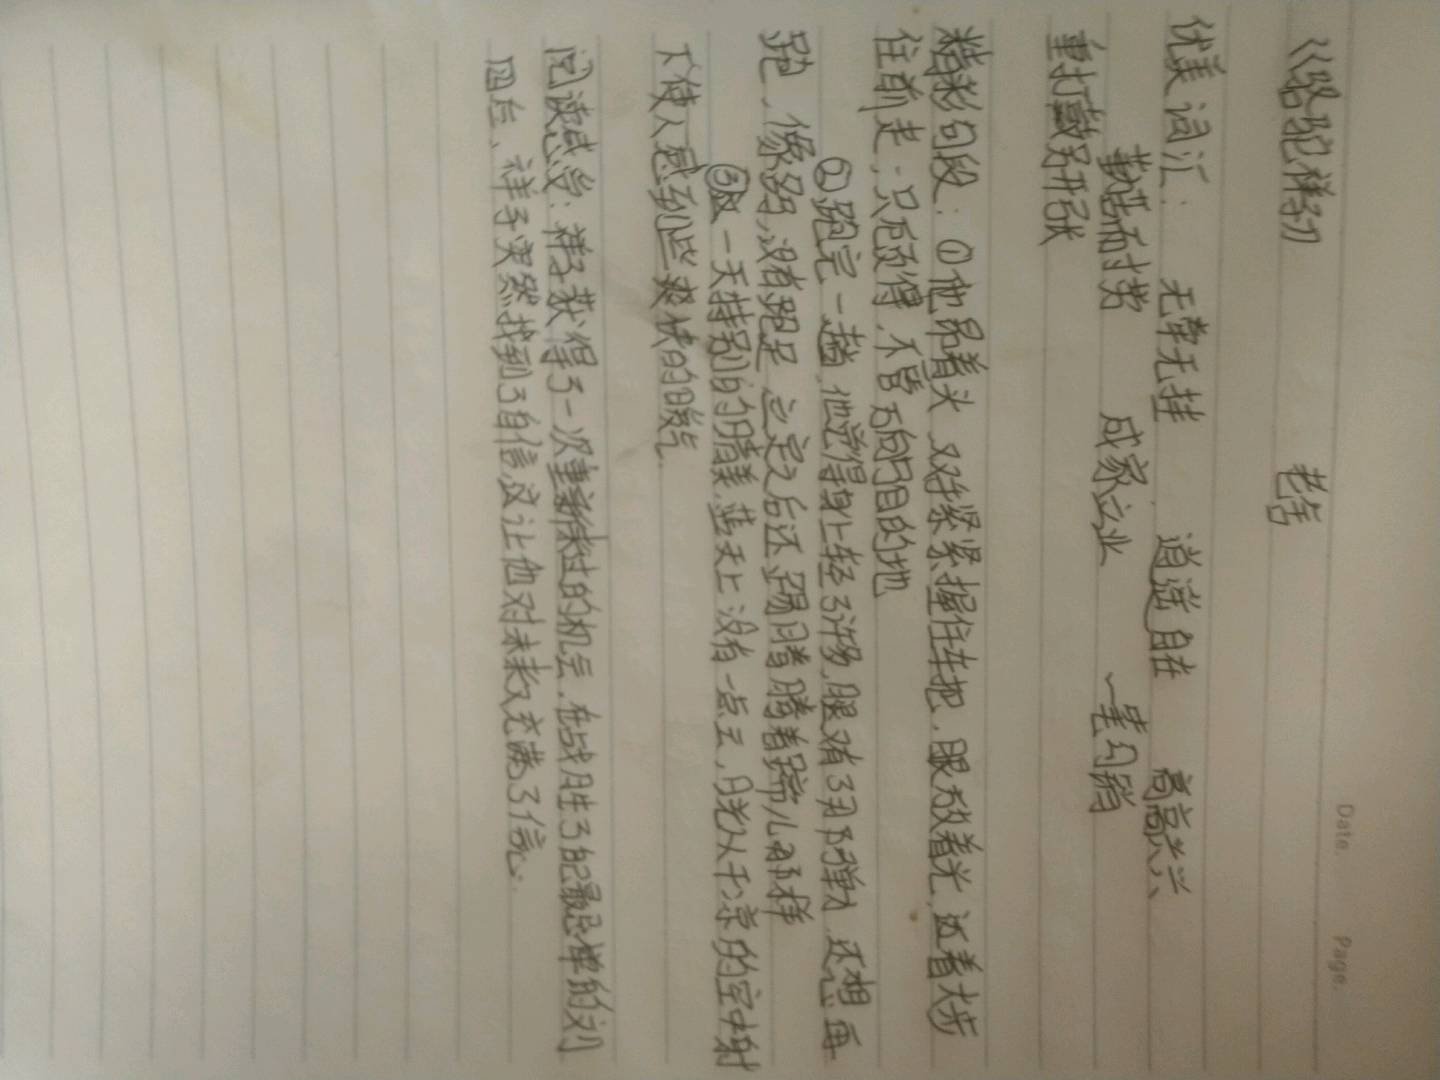 Date. Page.
《骆驼祥子》 老舍
优美词汇: 无牵无挂 逍遥自在 高高兴兴
勤苦耐劳 成家立业 一笔勾销
重打鼓另开张
精彩句段: ①他昂着头,双手紧紧握住车把,眼放着光,迈着大步
往前走,只顾得,不管方向与目的地
②跑完一趟,他觉得身上轻了许多,腿又有了那弹力,还想再
跑,像名马,没有跑足,立定之后还踢腾着蹄儿那样
③一天特别的晴美,蓝天上没有一点云,日光从干凉的空中射
下使人感到些爽快的暖气.
阅读感受: 祥子获得了一次重新来过的机会.在战胜了他最忌惮的刘
四后、祥子突然找到了自信,这让他对未来又充满了信心.